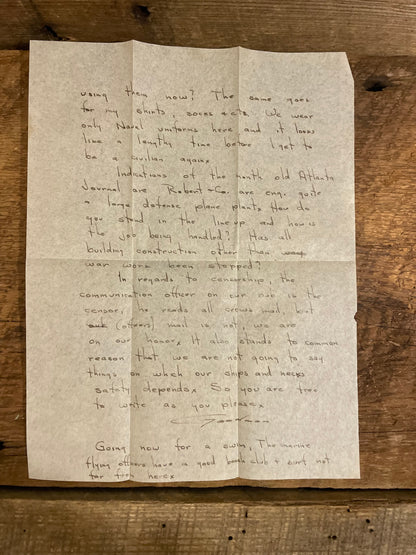 using them now? The same goes
for my shirts, socks & cts. We wear
only Naval uniforms here and it looks
like a lengthy time before I get to
be a civilian againx
Indications of the month old Atlanta
Journal are Robert & Co. are eng. quite
a large defense plane plantx How do
you stand in the lineup and how is
the job being handled? Has all
building construction other than way
war work been stopped?
In regards to censorship, the
communication officer on our ship is the
censor, he reads all crews mail but
(officers) mail is not, we are
on our honorx It also stands to common
reason that we are not going to say
things on which our ships and necks
safaty dependsx So you are free
to write as you pleasex
Going now for a swim, The marine
flying officers have a good beach club & surf not
far from herex